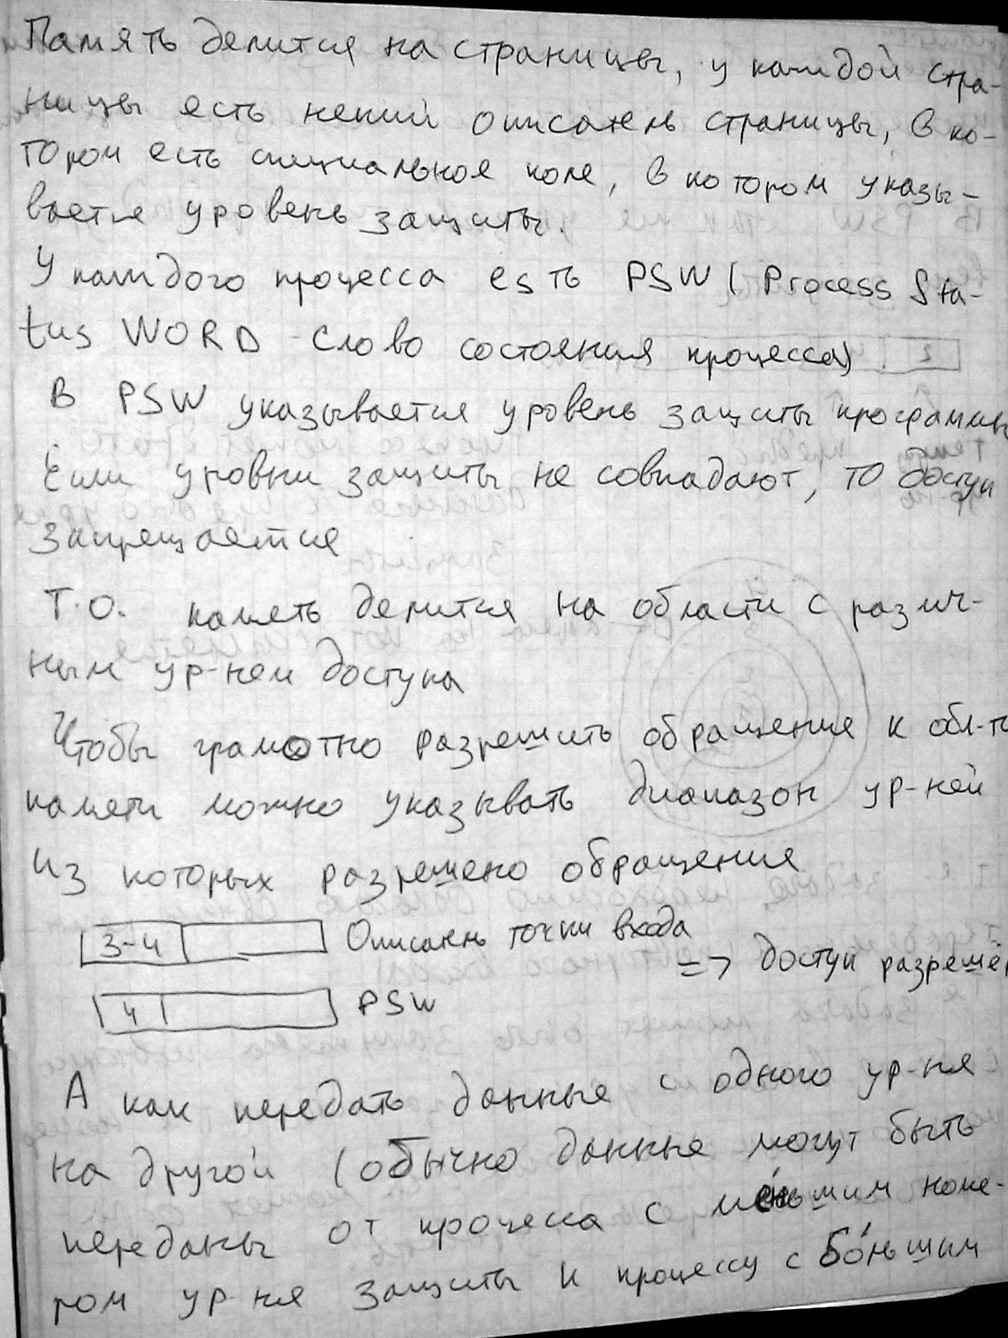 Память делится на страницы, у каждой стра-
ницы есть некий описатель страницы, в ко-
тором есть специальное поле, в котором указы-
вается уровень защиты.
У каждого процесса есть PSW (Process Sta-
tus WORD - слово состояния процесса)
В PSW указывается уровень защиты программы
Если уровни защиты не совпадают, то доступ
запрещается
Т.О. память делится на области с различ-
ным ур-нем доступа
Чтобы грамотно разрешить обращение к обл-ти
памяти можно указывать диапазон ур-ней
из которых разрешено обращение
3-4 Описатель точки входа
=> доступ разрешё
4 PSW
А как передать данные с одного ур-ня
на другой (обычно данные могут быть
переданы от процесса с меньшим номе-
ром ур-ня защиты к процессу с бо́льшим